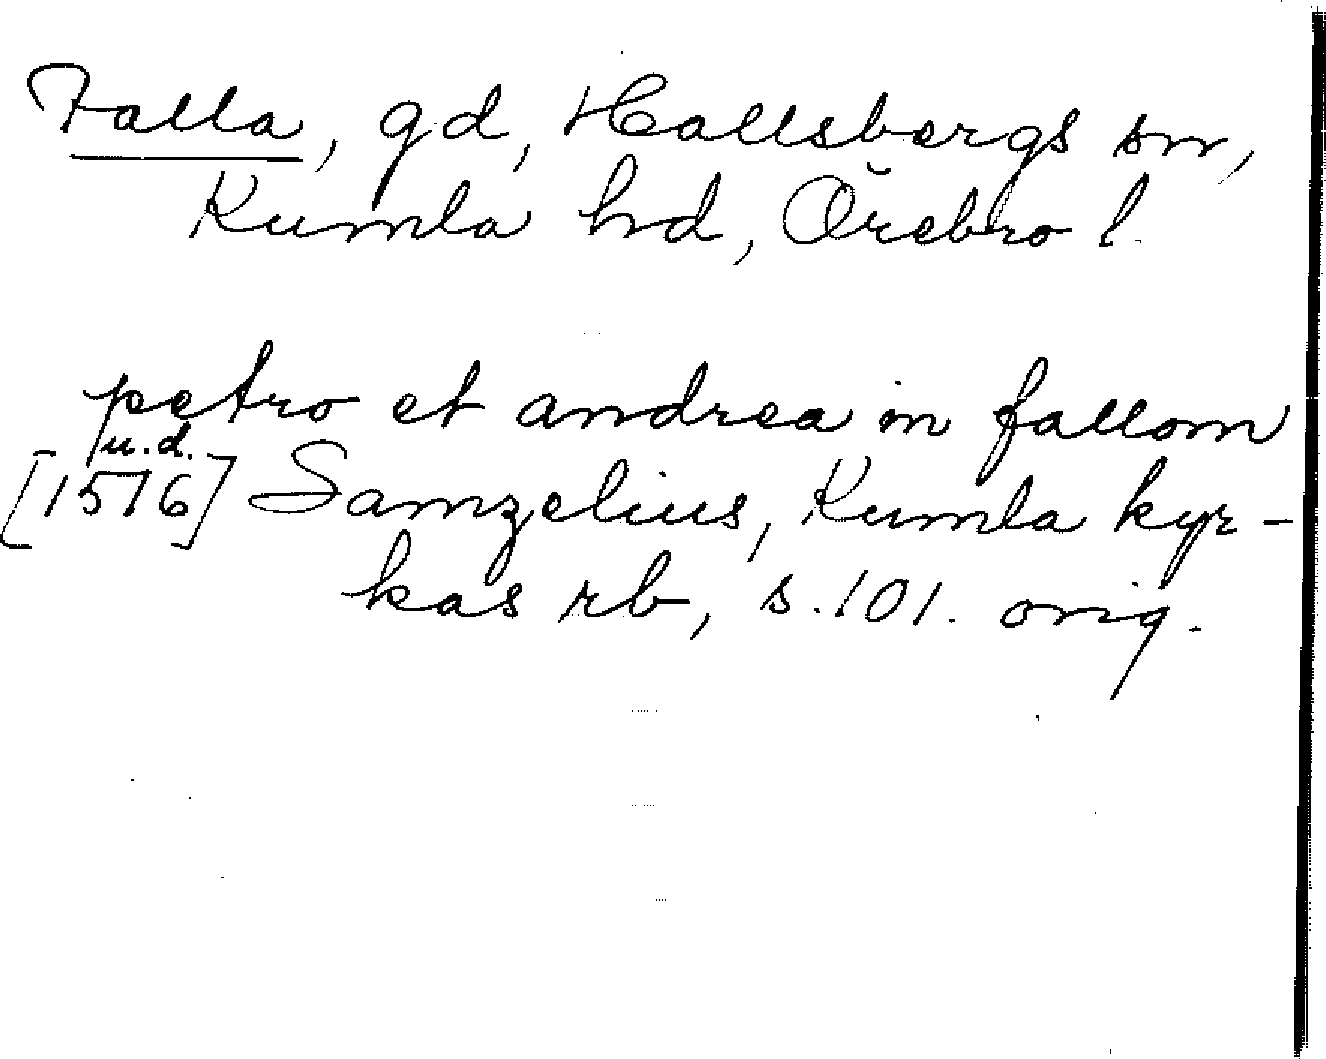 Falla, gd, Hallsbergs sn,
Kumla hd, Örebro l.
petro et andrea in fallom
u.d.
[1576] Samzelius, Kumla kyr-
kas rb, s. 101. orig.